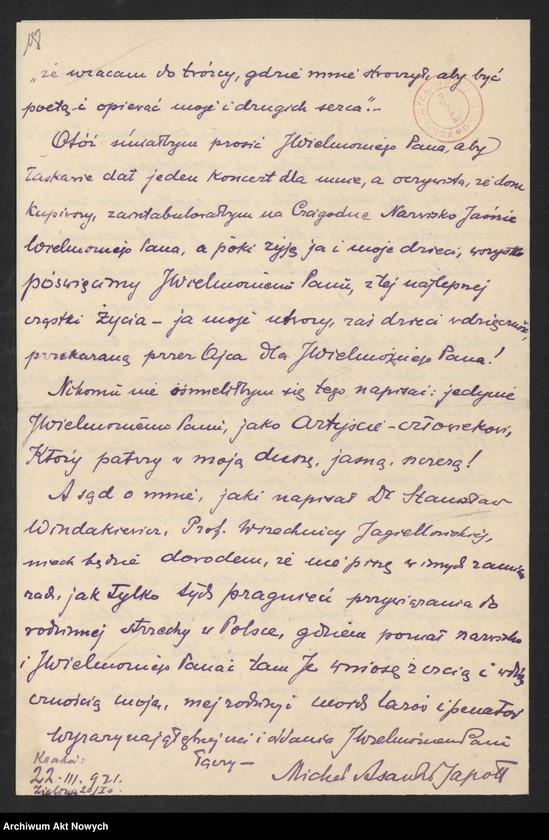 108
„że wracam do twórcy, gdzie mnie stworzył, aby być
poetą i opiewać moje i drugich serca".-
Otóż śmiałbym prosić JWielmożnego Pana, aby
łaskawie dał jeden koncert dla mnie, a oczywista, że dom
kupiony, zaintabulowałbym na Czcigodne Nazwisko Jaśnie
Wielmożnego Pana, a póki żyję ja i moje dzieci, wszystko
poświęcimy JWielmożnemu Panu, z tej najlepszej
cząstki życia – ja moje utwory, zaś dzieci wdzięczność,
przekazaną przez Ojca dla JWielmożnego Pana!
Nikomu nie ośmieliłbym się tego napisać: jedynie
JWielmożnemu Panu, jako Artyście-człowiekowi,
Który patrzy w moją duszę, jasną, szczerą!
A sąd o mnie, jaki napisał Dr Stanisław
Windakiewicz, Prof. Wszechnicy Jagiellońskiej,
niech będzie dowodem, że nie piszę w innych zamia
rach, jak tylko tych pragnień przywiązania do
rodzinnej strzechy w Polsce, gdziem poznał nazwisko
i JWielmożnego Pana i tam Je wniosę z czcią i wdzię
cznością moją, mej rodziny i moich larów i penatów
Wyrazy najgłębszej czci i oddania JWielmożnemu Panu
łączy –
Kraków:
22. III. 921.
Zielona 20/I p.
Michał Asanka Japołł
Archiwum Akt Nowych